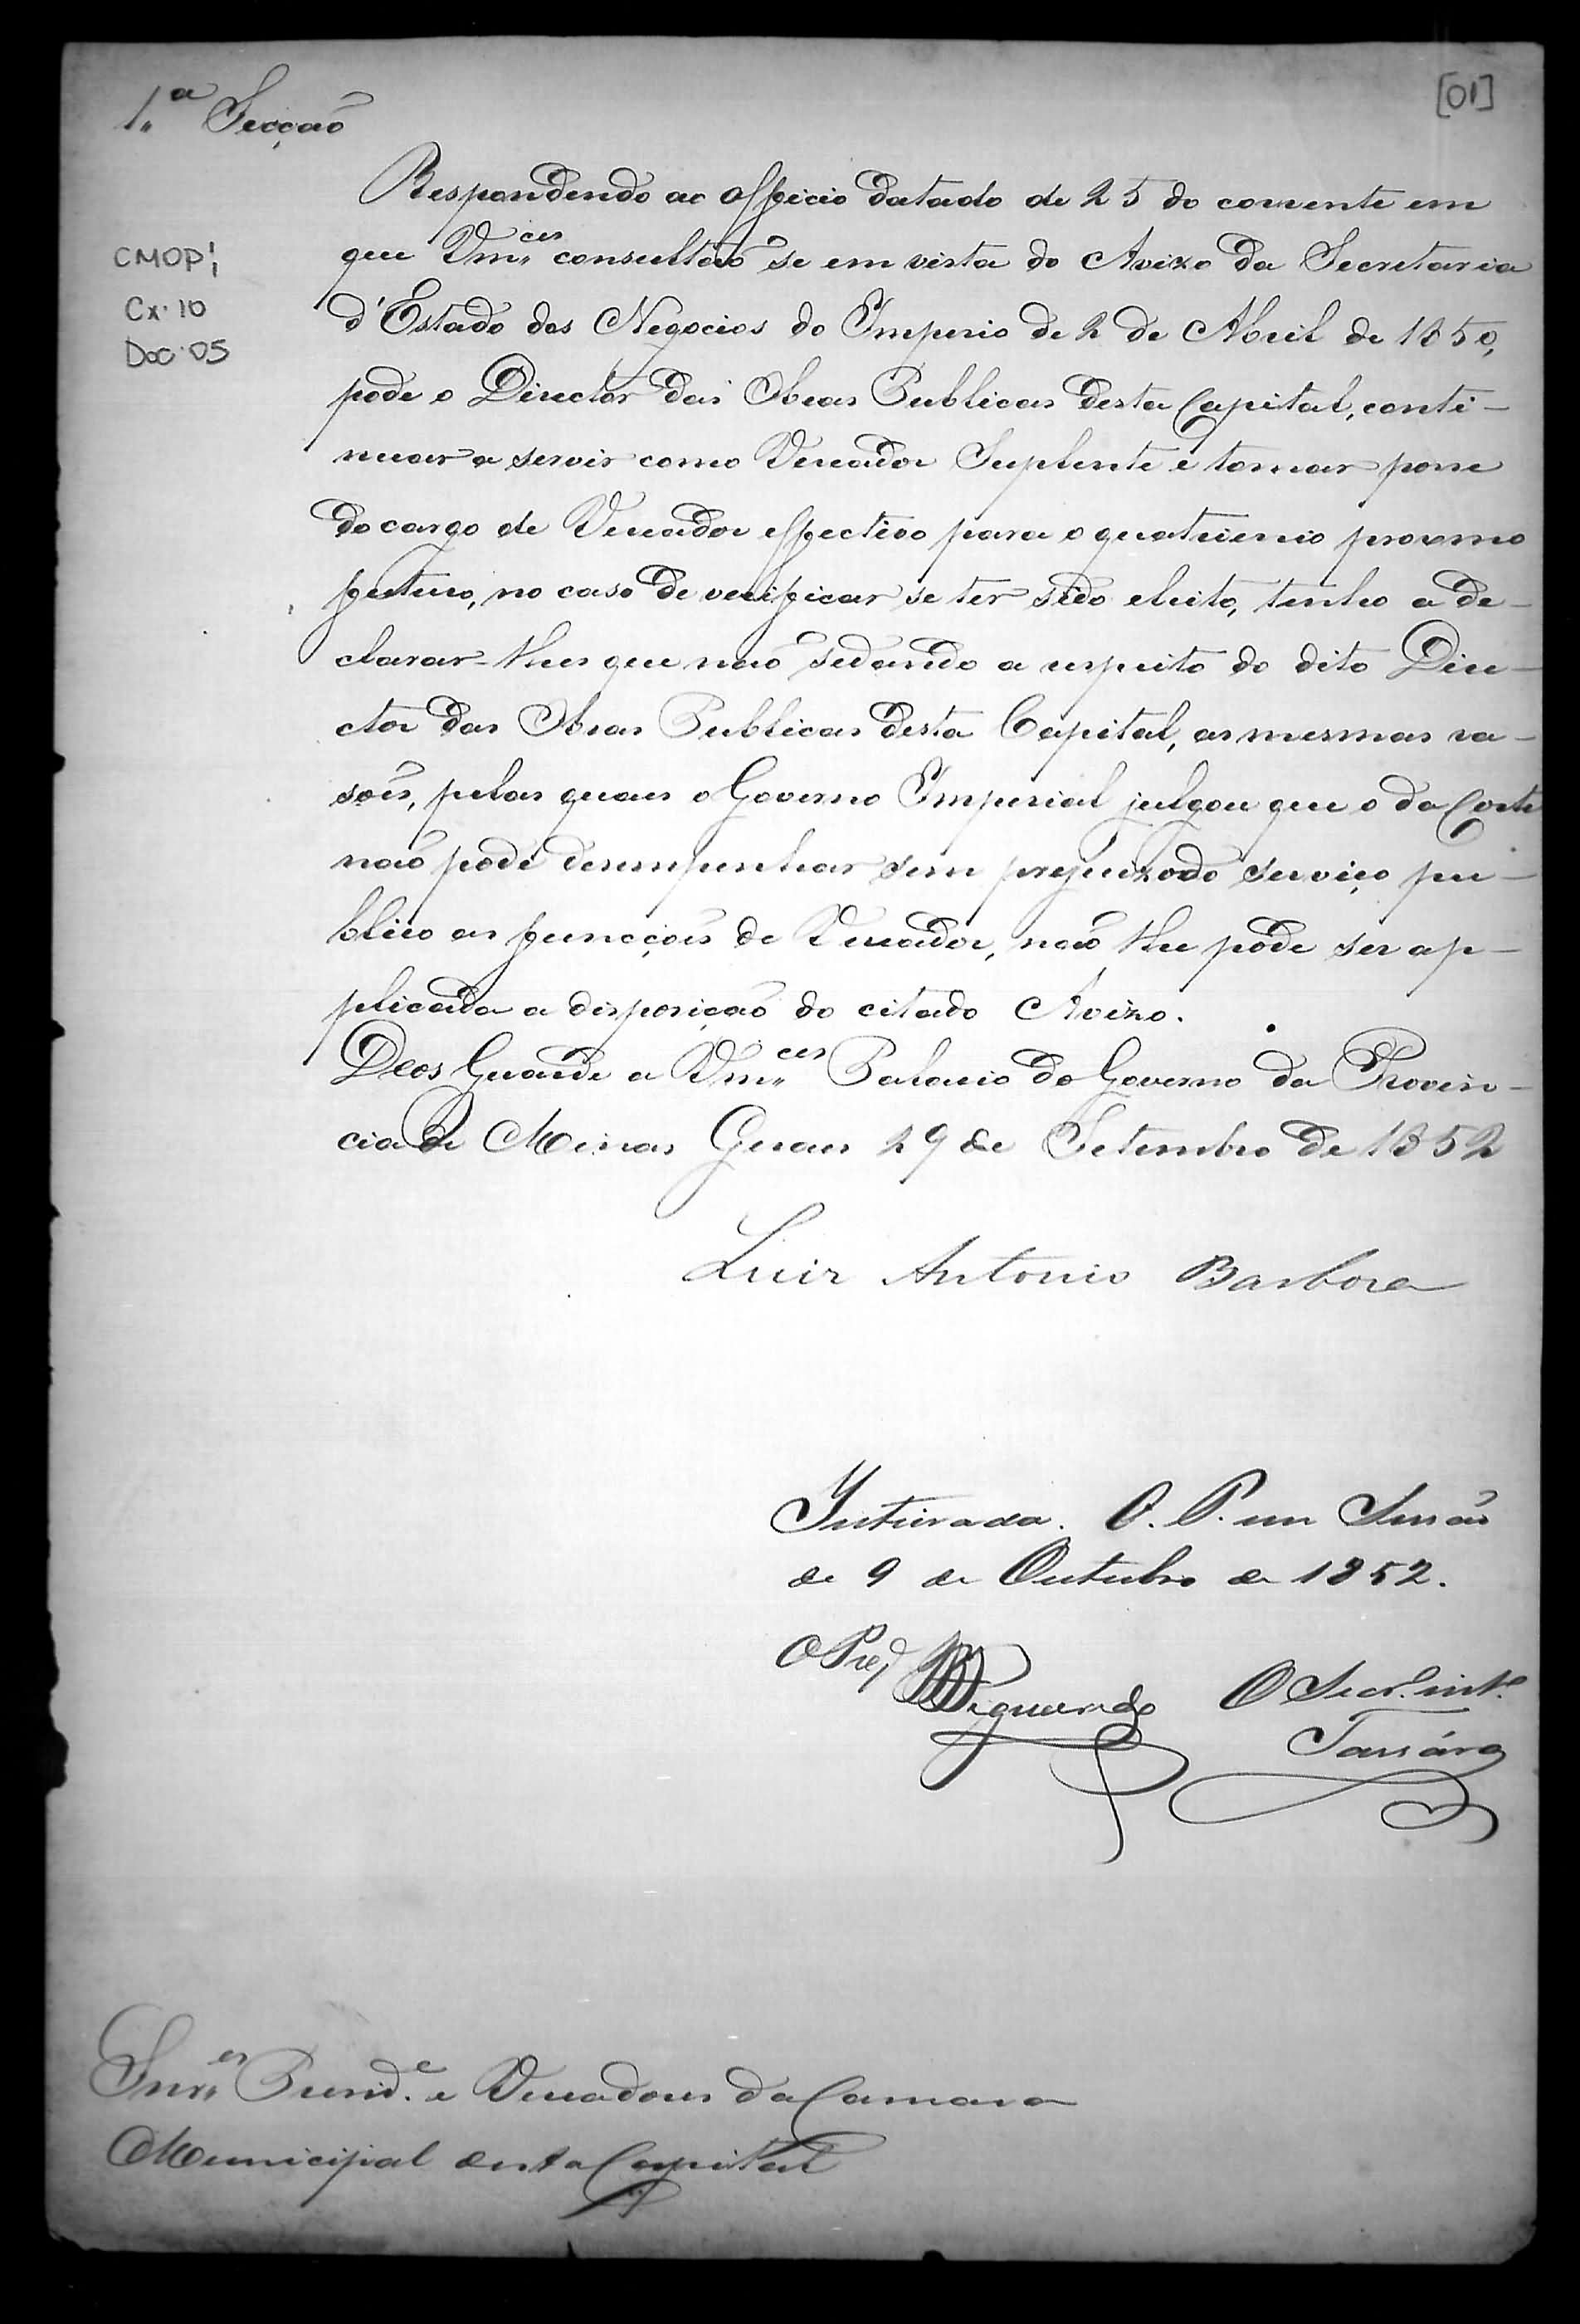 1.ª Secção
[01]
Respondendo ao officio datado de 25 do corrente em
CMOPi
que Vm.ces consultão se em vista do Avizo da Secretaria
Cx. 10
d'Estado dos Negocios do Imperio de 2 de Abril de 1850,
Doc. 05
pode o Director das Obras Publicas desta Capital, conti-
nuar a servir como Vereador Suplente e tomar posse
do cargo de Vereador effectivo para o quatrienio proximo
futuro, no caso de verificar se ter sido eleito, tenho a de-
clarar-lhes que não sedando a respeito do dito Dire-
ctor das Obras Publicas desta Capital, as mesmas ra-
sões, pelas quaes o Governo Imperial julgou que o da Corte
não pode desempenhar sem prejuizo do serviço pu-
blico as funcções de Vereador, não lhe pode ser ap-
plicada a disposição do citado Avizo.
Deos Guarde a Vm.ces Palacio do Governo da Provin-
cia de Minas Geraes 29 de Setembro de 1852
Luiz Antonio Barboza
Inteirada. O. P. em Sessão
de 9 de Outubro de 1852.
O Pred
O Secr. int.º
Snr.es Presid.e e Vereadores da Camara
Municipal desta Capital